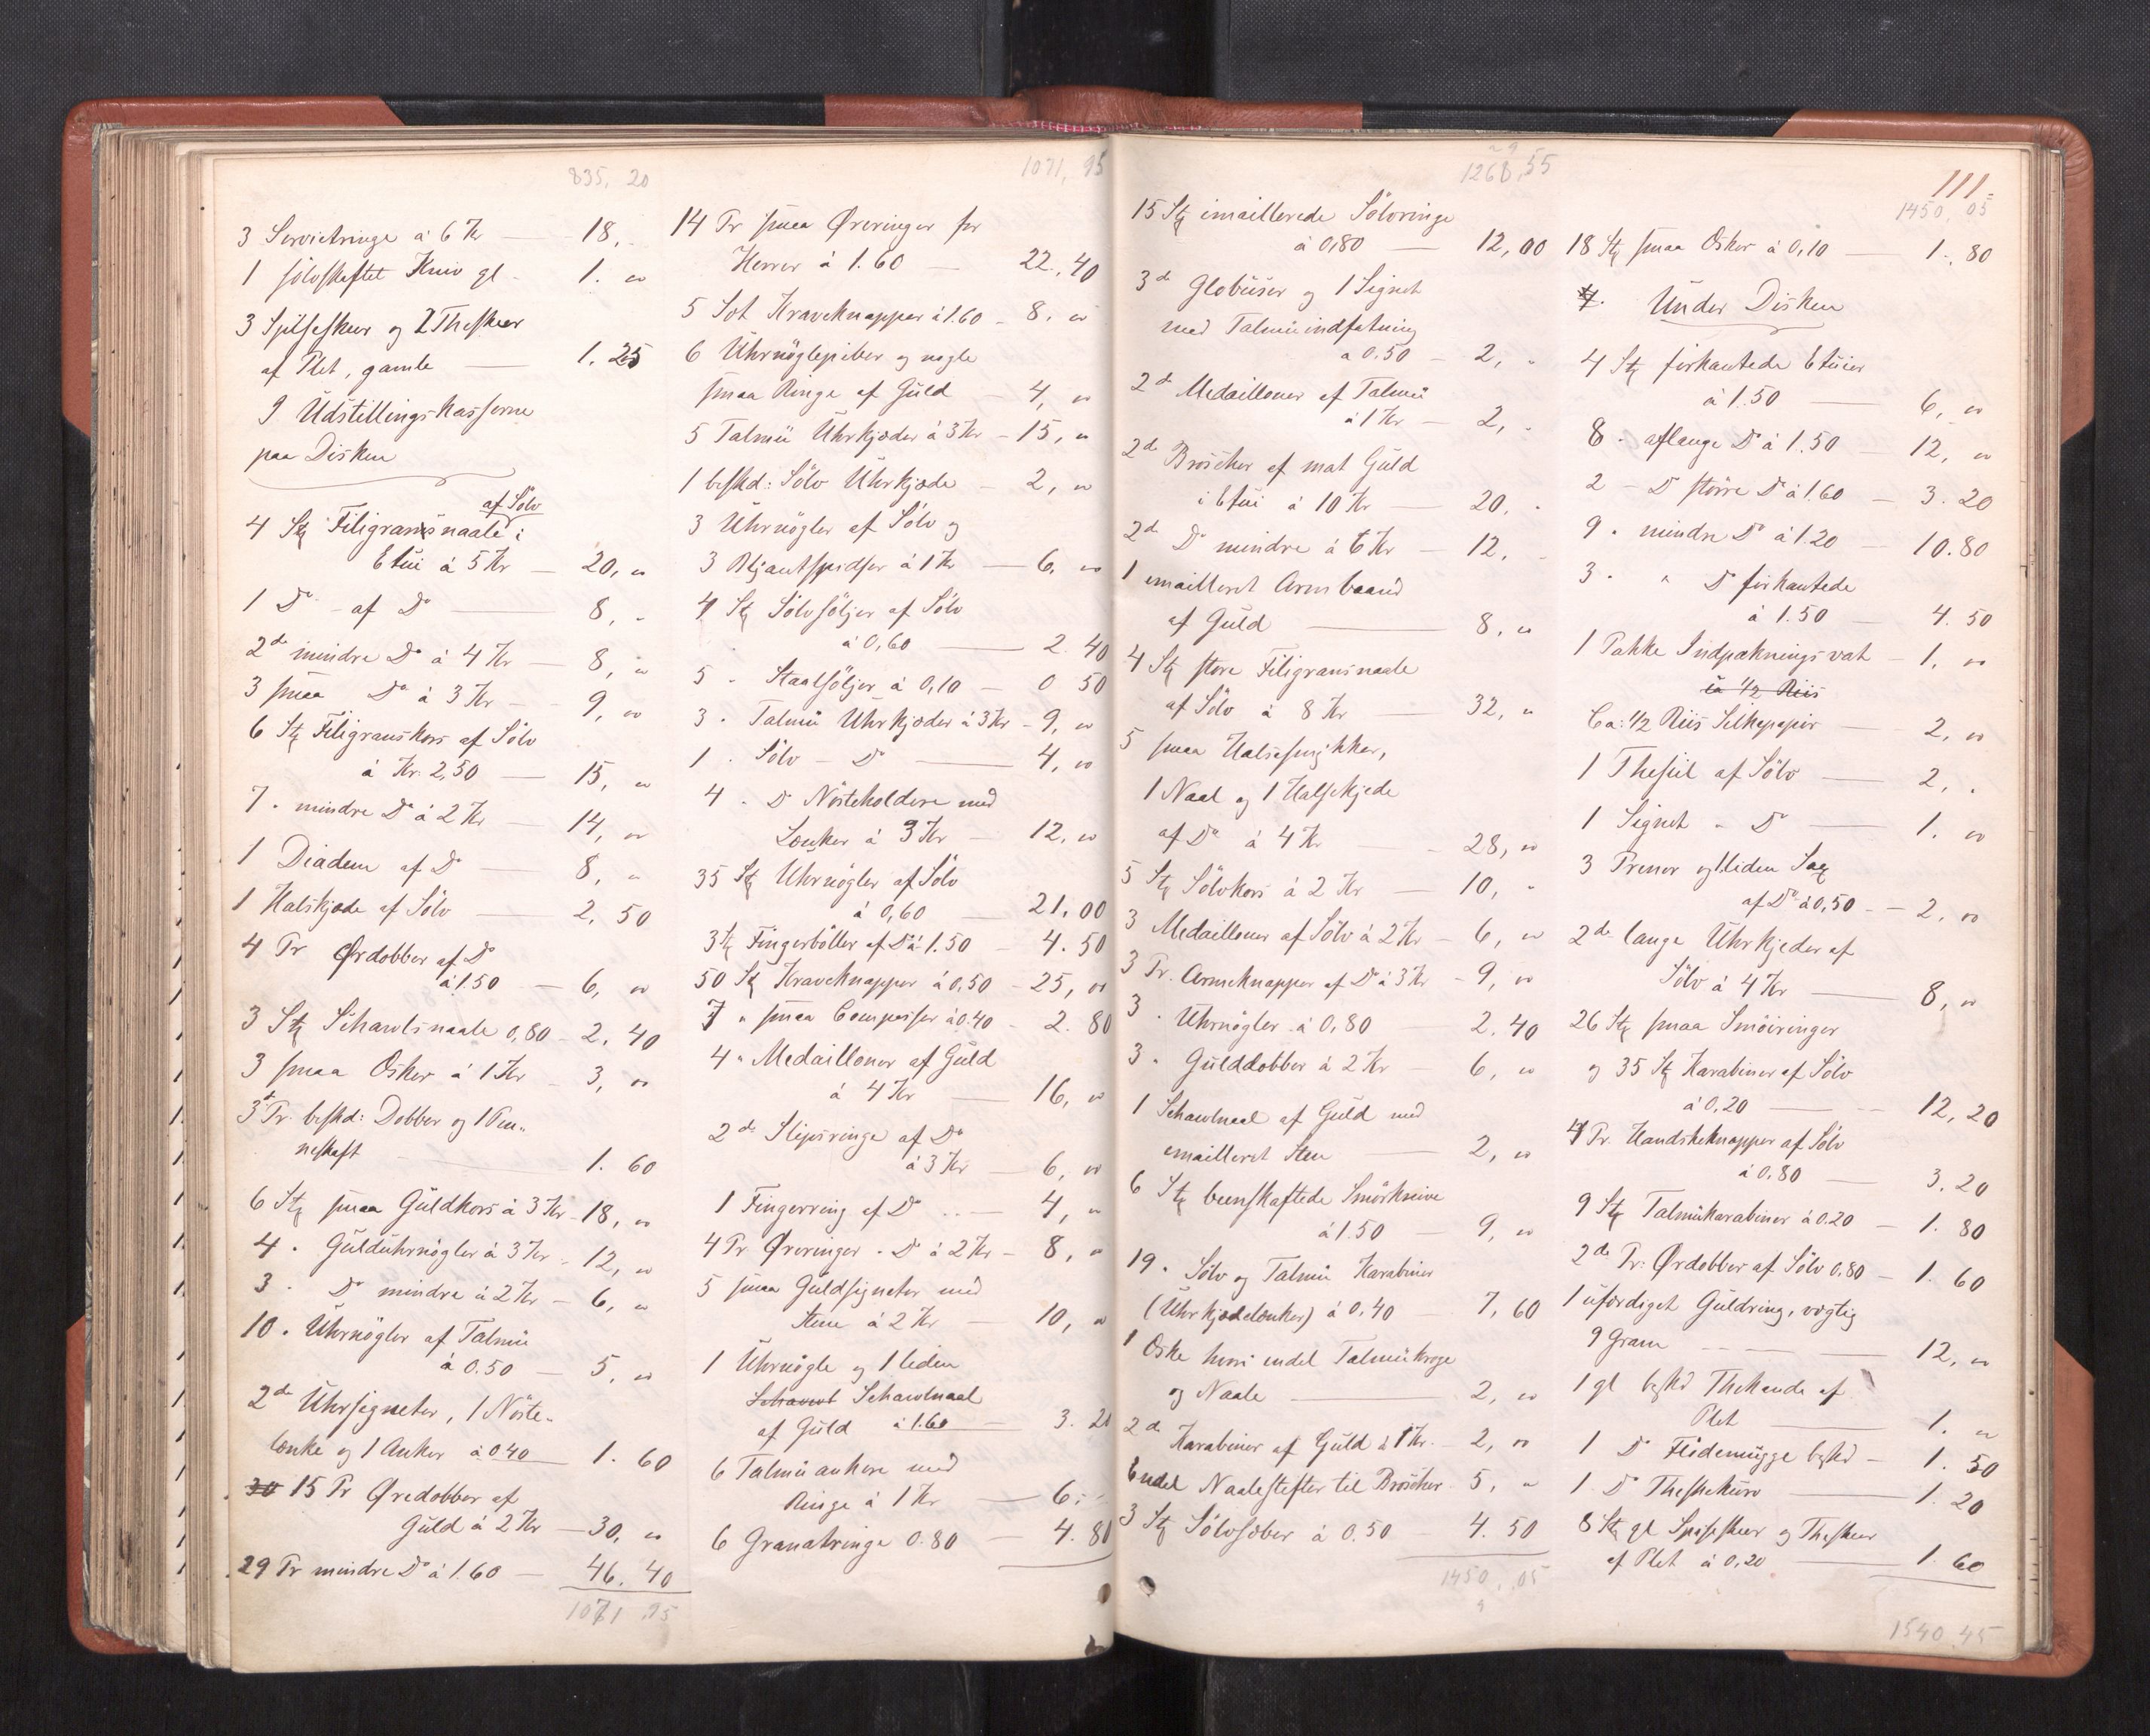 835, 20
3 Servietringe á 6 Kr — 18, "
1 sölvskeftet Kniv gl — 1. "
3 Spiseskeer og 2 Theskeer
af Plet, gamle — 1. 25
I Udstillingskasserne
paa Disken
af Sölv
4 Stk Filigransnaale i
Etui á 5 Kr — 20, "
1 Do - af Do — 8, "
2de mindre Do á 4 Kr — 8, "
3 smaa Do á 3 Kr — 9, "
6 Stk Filigranskors af Sölv
á Kr. 2,50 — 15, "
7 " mindre Do á 2 Kr — 14, "
1 Diadem af Do — 8, "
1 Halskjæde af Sölv — 2, 50
4 Pr Ørdobber af Do
á 1.50 — 6, "
3 Stk Schawlsnaale 0,80 - 2. 40
3 smaa Æsker á 1 Kr - 3, "
3 Pr. beskd: Dobber og 1 Pen-
neskaft — 1. 60
6 Stk smaa Guldkors á 3 Kr - 18, "
4 " Gulduhrnögler á 3 Kr - 12, "
3 " Do mindre á 2 Kr — 6, "
10 " Uhrnögler af Talmü
á 0.50 — 5, "
2de Uhrsigneter, 1 Nöste-
lænke og 1 Anker á 0 40 — 1. 60
30 15 Pr Øredobber af
Guld á 2 Kr — 30, "
29 Pr mindre Do á 1.60 — 46. 40
1071 95
1071, 95
14 Pr smaa Øreringer for
Herrer á 1.60 — 22., 40
5 Sæt Kraveknapper á 1.60 - 8. "
6 Uhrnöglepiber og nogle
smaa Ringe af Guld — 4, "
5 Talmü Uhrkjæder á 3 Kr - 15, "
1 beskd: Sölv Uhrkjæde — 2, "
3 Uhrnögler af Sölv og
3 Blyantspidser á 1 Kr — 6, "
4 Stk Sölvsöljer af Sölv
á 0,60 — 2. 40
5 " Staalsöljer á 0,10 — 0 50
3 " Talmü Uhrkjæder á 3 Kr - 9, "
1 " Sölv - Do — 4, "
4 " Do Nösteholdere med
Lænker á 3 Kr — 12, "
35 Stk Uhrnögler af Sölv
á 0,60 — 21. 00
3 Stk Fingerböller af Do á 1.50 — 4. 50
50 Stk Kraveknapper á 0,50 - 25, 00
7 " smaa Compasser á 0.40 - 2. 80
4 " Medailloner af Guld
á 4 Kr — 16, "
2de Slipsringe af Do
á 3 Kr — 6, "
1 Fingerring af Do — 4, "
4 Pr Øreringer " Do á 2 Kr — 8, "
5 smaa Guldsigneter med
Stene á 2 Kr — 10, "
1 Uhrnögle og 1 liden
Schawl Schawlnaal
af Guld á 1.60 — 3. 20
6 Talmüankere med
Ringe á 1 Kr — 6, -
6 Granatringe 0.80 — 4. 80
1268,55
15 Stk emaillerede Sölvringe
á 0,80 — 12, 00
3de Globuser og 1 Signet
med Talmüindfatning
á 0.50 — 2, "
2de Medailloner af Talmü
á 1 Kr — 2, "
2de Broscher af mat Guld
i Etui á 10 Kr — 20, "
2de Do mindre á 6 Kr — 12, "
1 emailleret Armbaand
af Guld — 8, "
4 Stk store Filigransnaale
af Sölv á 8 Kr — 32, "
5 smaa Halssmykker,
1 Naal og 1 Halskjede
af Do á 4 Kr — 28, "
5 Stk Sölvkors á 2 Kr — 10, "
3 Medailloner af Sölv á 2 Kr — 6, "
3 Pr. Armeknapper af Do á 3 Kr - 9, "
3 " Uhrnögler á 0,80 — 2. 40
3 " Gulddobber á 2 Kr — 6, "
1 Schawlnaal af Guld med
emailleret Sten — 2, "
6 Stk beenskaftede Smörknive
á 1.50 — 9, "
19 " Sölv og Talmü Karabiner
(Uhrkjædelænker) á 0,40 — 7, 60
1 Æske hvori endel Talmükroge
og Naale — 2, "
2de Karabiner af Guld á 1 Kr. - 2, "
Endel Naalestifter til Broscher - 5, "
3 Stk Sölvsæber á 0.50 — 4. 50
1450, 05
111.
1450, 05
18 Stk smaa Æsker á 0,10 — 1., 80
Under Disken
4 Stk firkantede Etuier
á 1.50 — 6, "
8 " aflange Do á 1.50 12, "
2 - Do större Do á 1.60 — 3. 20
9 " mindre Do á 1.20 — 10.80
3 " " Do firkantede
á 1.50 — 4. 50
1 Pakke Indpakningsvat — 1, "
ca 1/2 Riis
Ca: 1/2 Riis Silkepapir — 2, "
1 Thesiil af Sölv — 2, "
1 Signet " Do — 1. "
3 Prener og 1 liden Sax
af Do á 0,50 — 2, "
2de lange Uhrkjeder af
Sölv á 4 Kr — 8, "
26 Stk smaa Snöiringer
og 35 Stk Karabiner af Sölv
á 0,20 — 12, 20
4 Pr. Handskeknapper af Sölv
á 0.80 — 3. 20
9 Stk Talmükarabiner á 0.20 — 1. 80
2de Pr. Ørdobber af Sölv 0.80 — 1. 60
1 ufærdiget Guldring, vægtig
9 Gram — 12, "
1 gl beskd Thekande af
Plet — 1. "
1 Do Flødemugge beskd — 1. 50
1 Do Theskekurv — 1. 20
8 Stk gl Spiseskeer og Theskeer
af Plet á 0,20 — 1. 60
1540 45